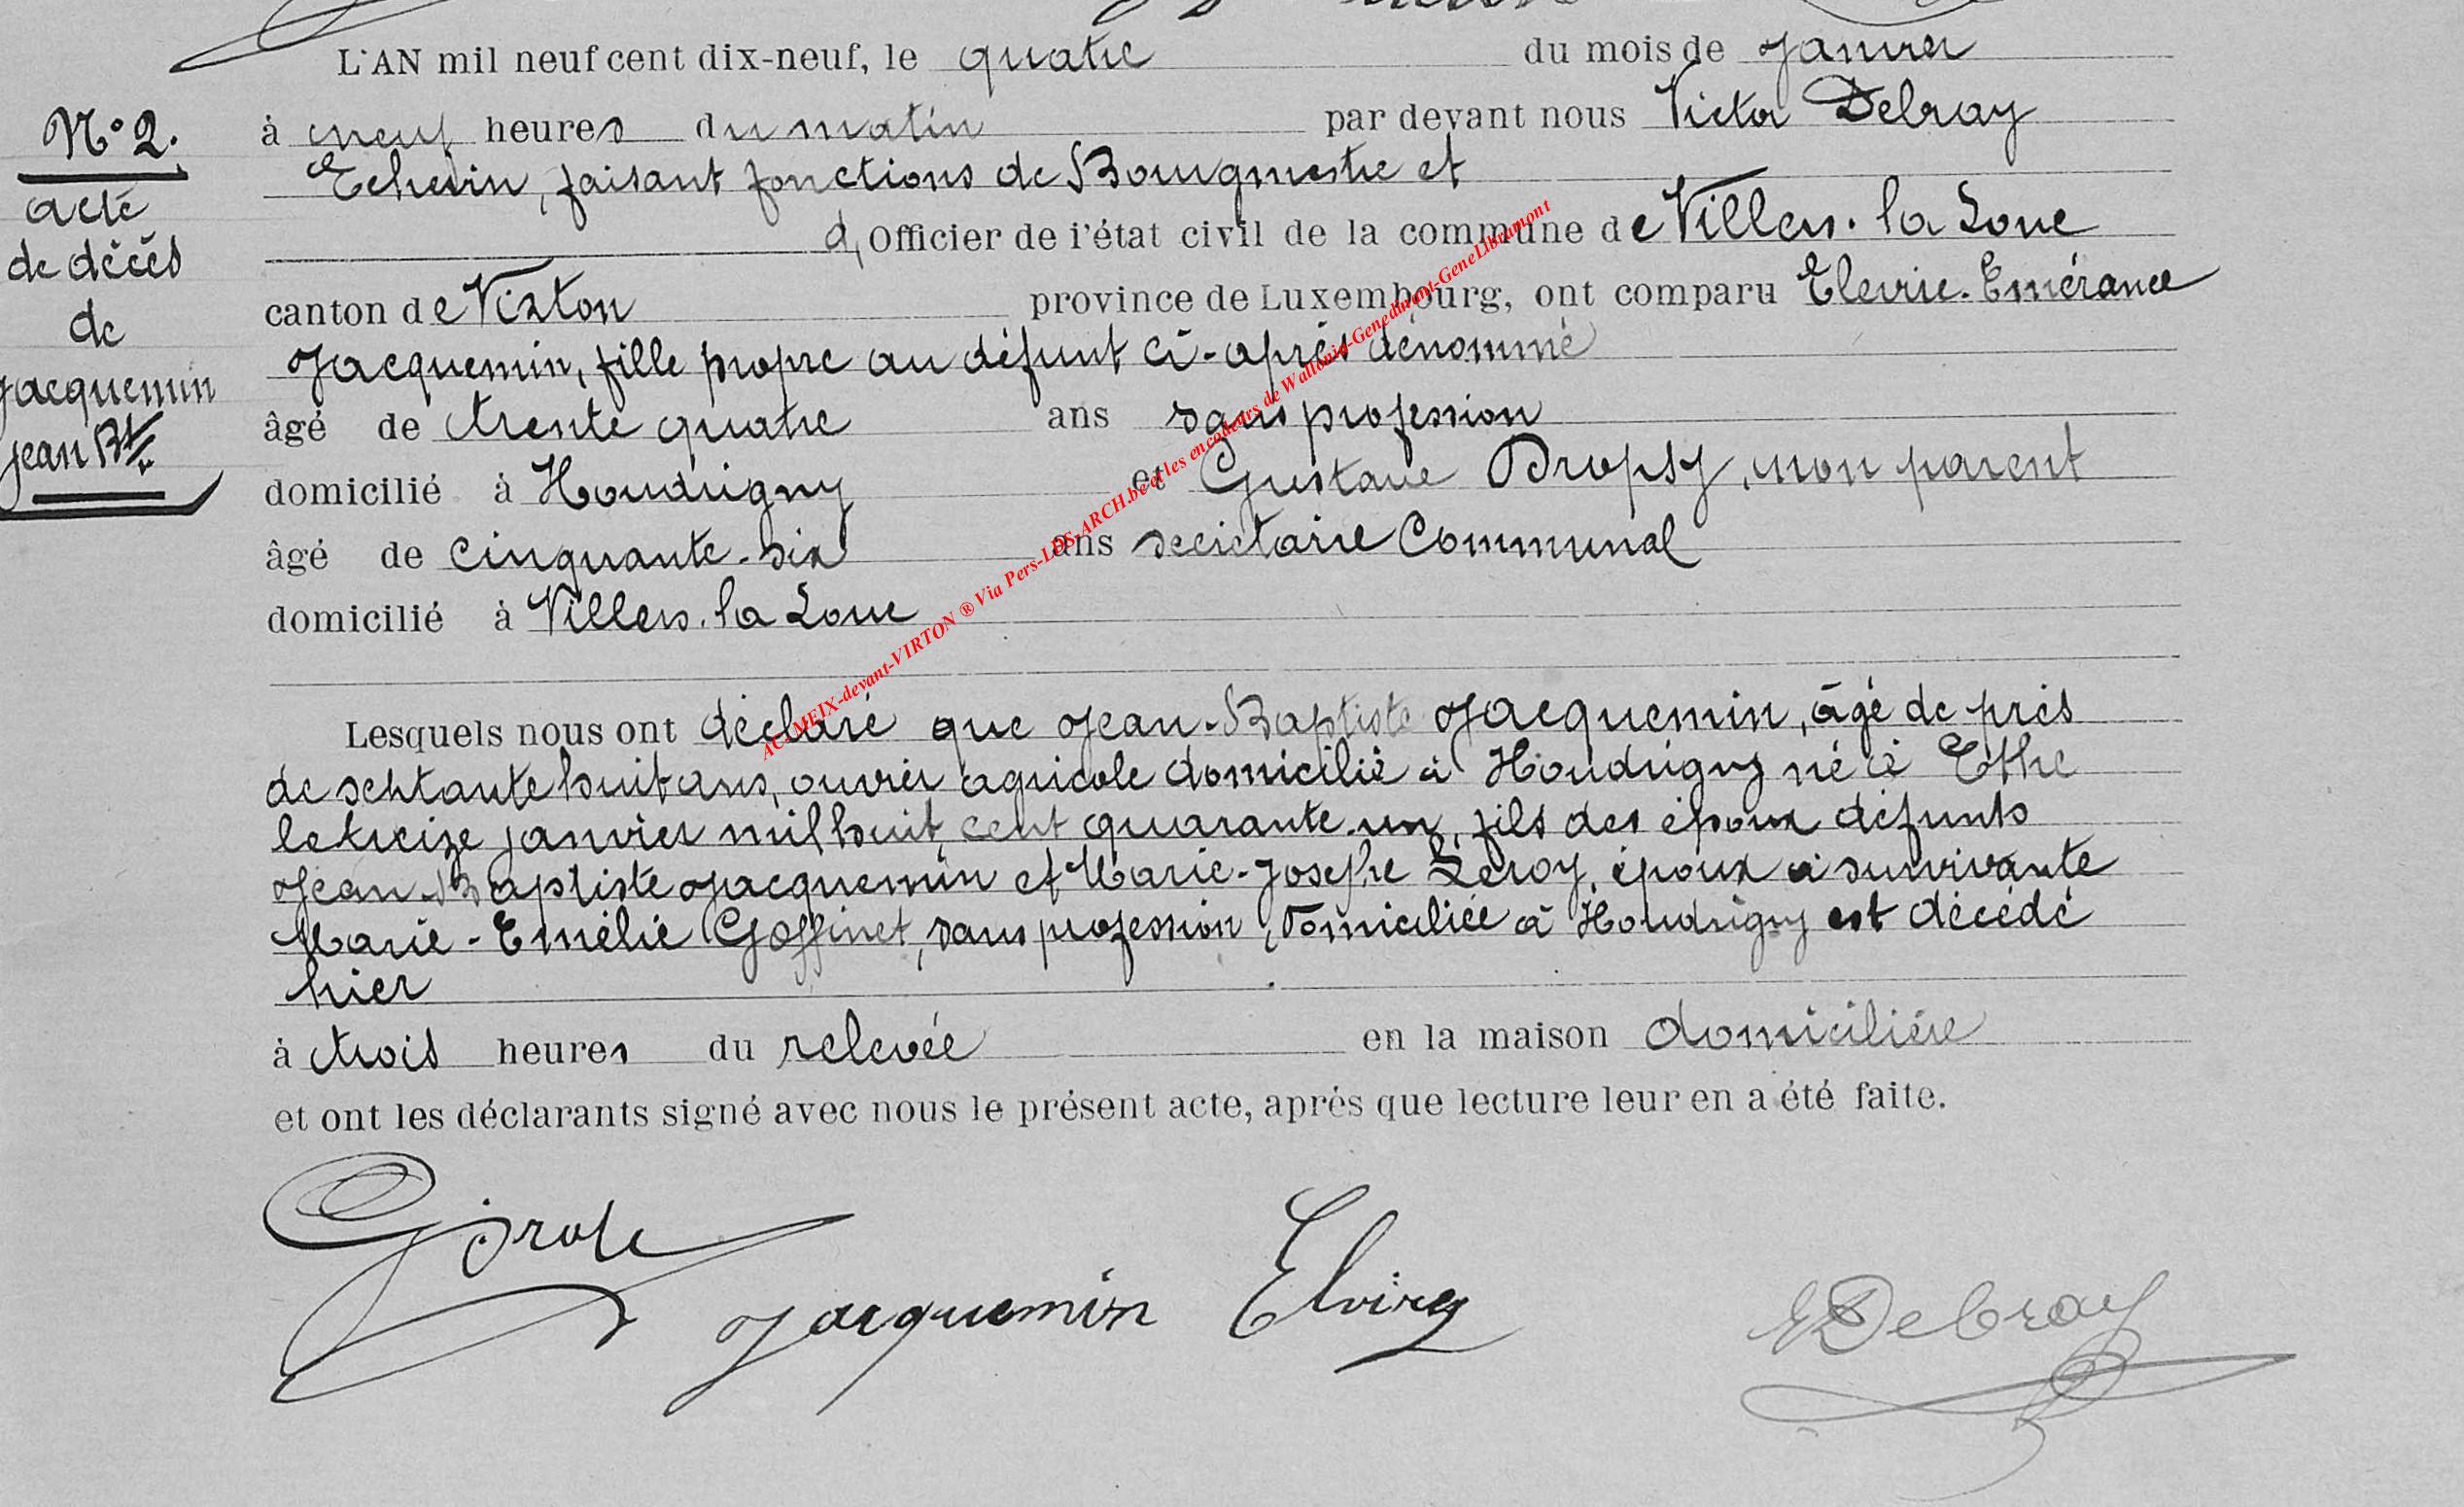 L'AN mil neuf cent dix-neuf, le quatre du mois de Janvier
N° 2. à neuf heures du matin par devant nous Victor Debray
Echevin, faisant fonctions de Bourgmestre et
acte
d, Officier de l'état civil de la commune de Villers-la-Loue
de décés
canton de Virton province de Luxembourg, ont comparu Elevire-Emérance
de
Jacquemin, fille propre au défunt ci-après dénommé
Jacquemin
âgé de trente quatre ans sans profession
Jean Bte
domicilié à Houdrigny et Gustave Dropsy, non parent
âgé de cinquante-six ans secrétaire Communal
domicilié à Villers-la-Loue
Lesquels nous ont déclaré que Jean-Baptiste Jacquemin, âgé de près
de septante huit ans, ouvrier agricole domicilié à Houdrigny né à Ethe
le treize janvier mil huit cent quarante-un, fils des époux défunts
Jean-Baptiste Jacquemin et Marie-Josephe Leroy, époux à survivante
Marie-Emélie Goffinet, sans profession, domiciliée à Houdrigny est décédé
hier
à trois heures du relevée en la maison domicilière
et ont les déclarants signé avec nous le présent acte, après que lecture leur en a été faite.
Jacquemin Elvire
VDebray
AC. MEIX-devant-VIRTON ® Via Pers-LDS-ARCH.be et les encodeurs de Wallonia-Genedinant-GeneLibramont